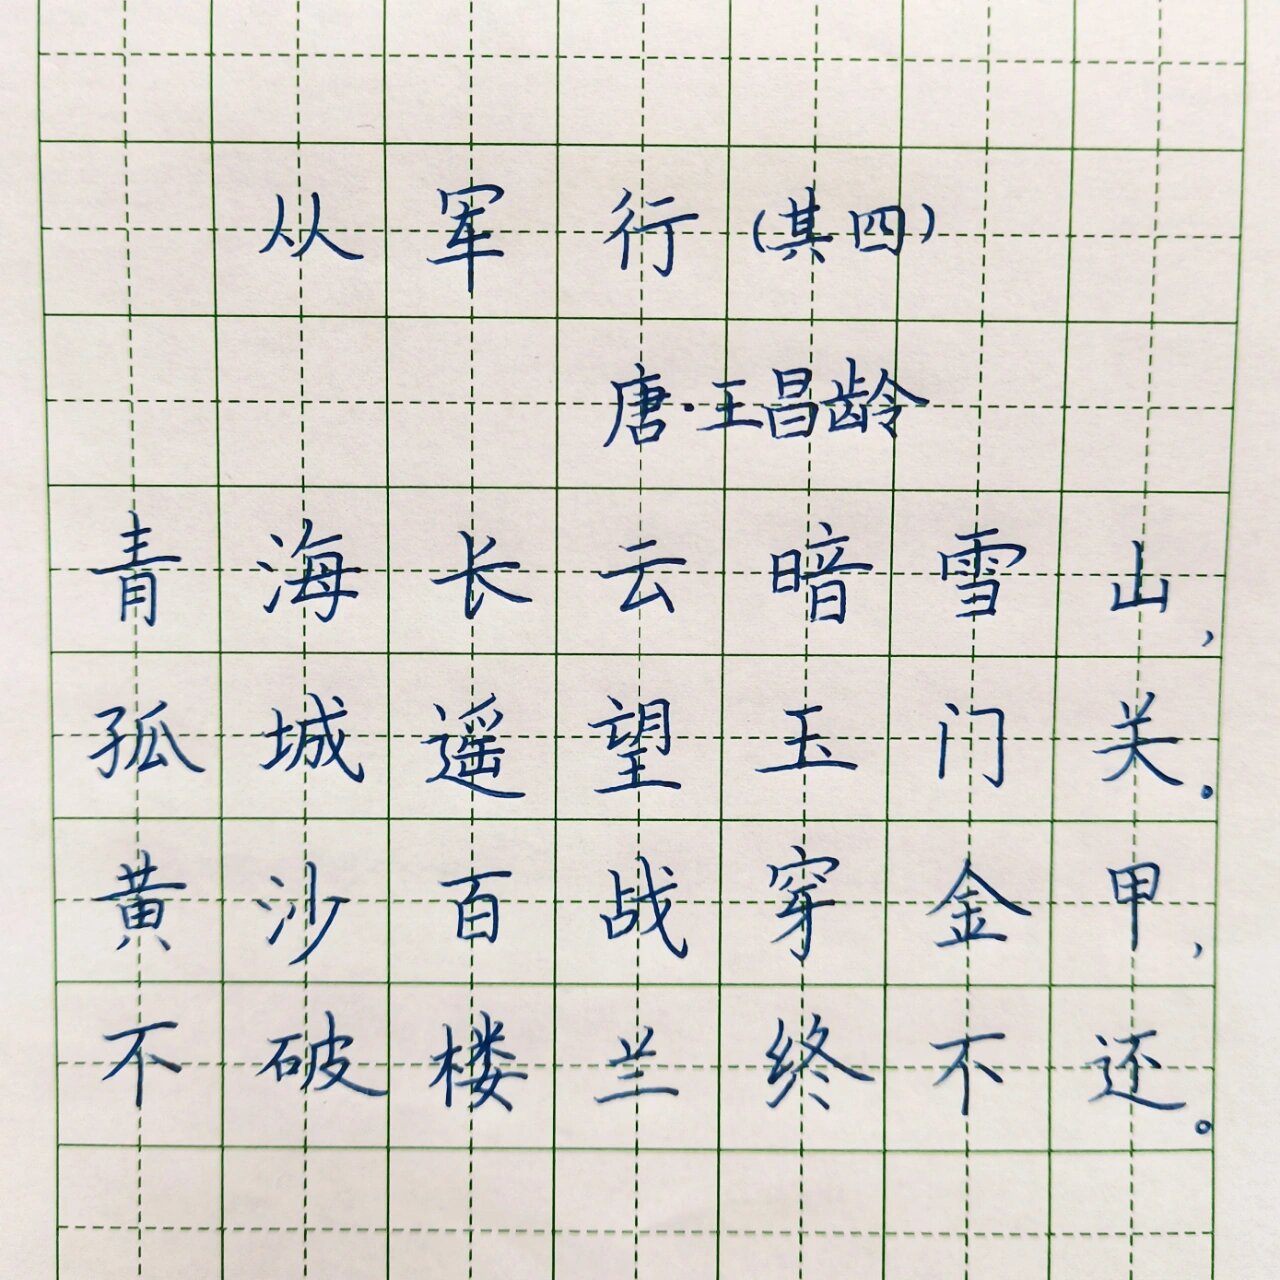 从军行(其四)
唐·王昌龄
青海长云暗雪山,
孤城遥望玉门关。
黄沙百战穿金甲,
不破楼兰终不还。